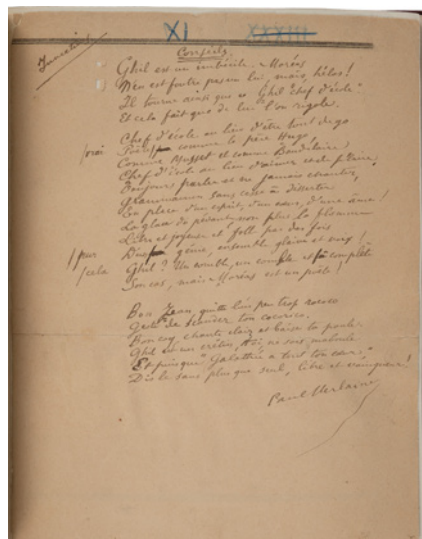 XI XXXIII
Invectives
Conseils.
Ghil est un imbécile. Moréas
N'en est foutre pas un lui, mais, hélas!
Il tourne ainsi que ce Ghil "chef d'école"
Et cela fait que de lui l'on rigole.
Chef d'école au lieu d'être tout de go
/vrai Poète comme le père Hugo,
Comme Musset et comme Baudelaire,
Chef d'école au lieu d'aimer et de plaire,
Toujours parler et ne jamais chanter,
Grammairien sans cesse à disserter
En place d'un esprit, d'un cœur, d'une âme!
La glose de pédant, non plus la flamme
Libre et joyeuse et folle par des fois
/pur D'un génie, ensemble gloire et voix!
/cela Ghil? Un comble, un comble et complète
Son cas, mais Moréas est un poète!
Bon Jean, quitte un peu trop rococo
de scander ton cocorico.
Bon coq, chante clair et baise ta poule.
Ghil est un crétin, toi, ne sois
Et puisque "Galathée a tout ton cœur,"
Dis-le sans plus que seul, libre et vainqueur!
Paul Verlaine